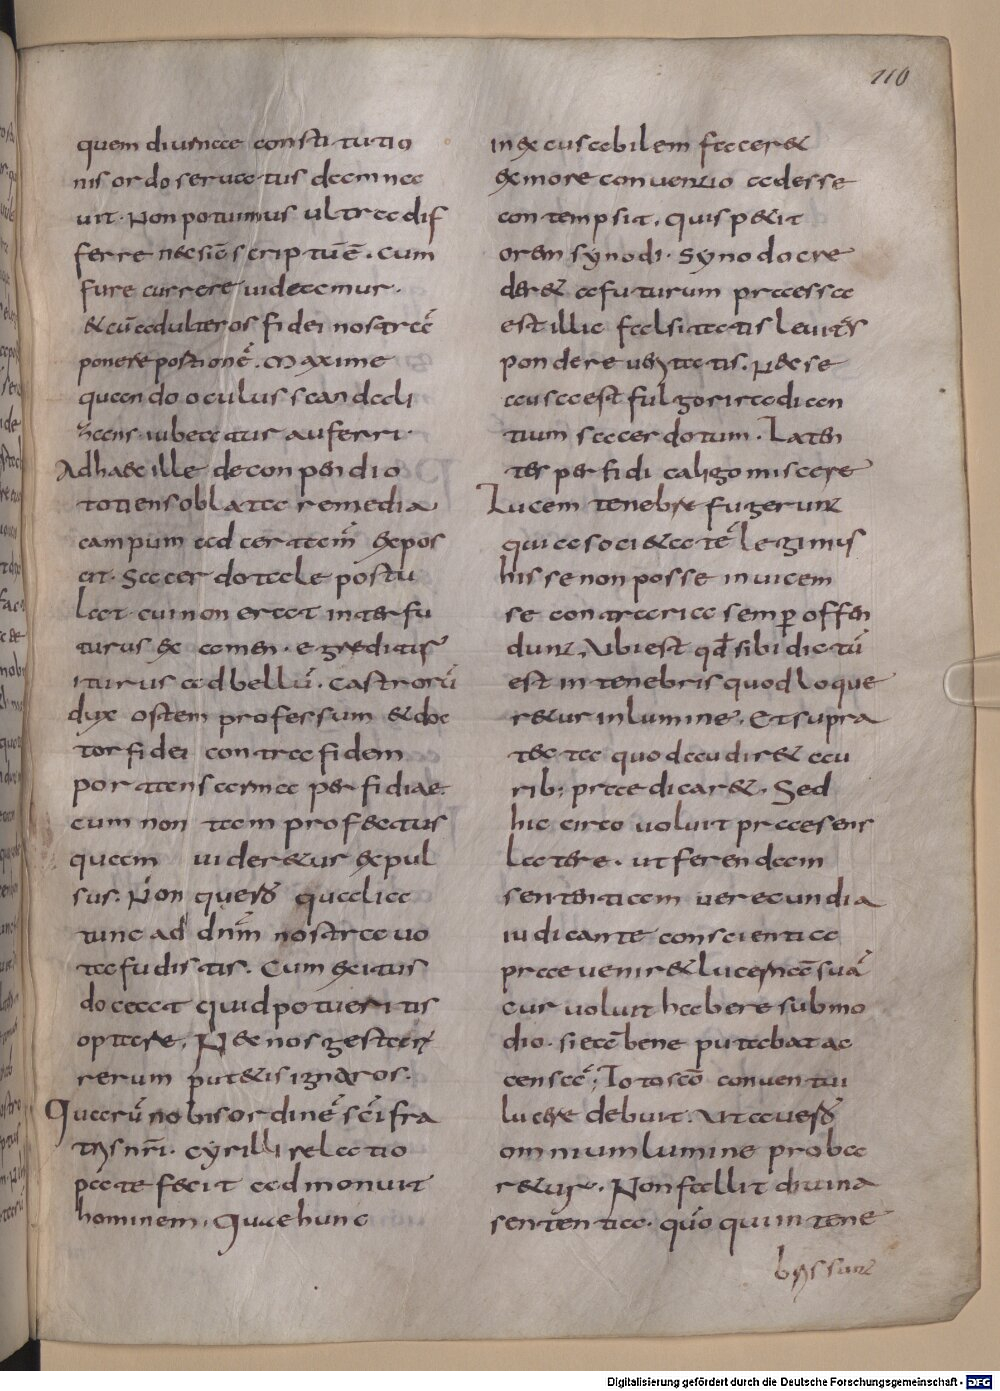 110
quem diuinae constitutio
nis ordo seruatus damna
uit. Non possumus ultra dif
ferre nec sic̄ scriptū ē. Cum
fure currere uideamur.
& cū adulteros fidei nostrā
ponere postionē. Maxime
quando oculus scandali
zans. iubeatur auferri.
Adhaec ille de conpendio
totiens oblata remedia
campum ad certam̄ expos
cit. Sacerdotale postu
lat. cui non erat interfu
turus examen. egreditur
iturus ad bellū. castrorū
dux ostem professum & doc
tor fidei contra fidem
portans arma perfidiae
cum non tam profectus
quam uideretur expul
sus. Non querᷤ qualia
tunc ad dn̄m nostra uo
ta fudistis. Cum exitus
doceat quid potueritis
optare. Nec nos gestarū
rerum putetis ignaros.
Quarū nobis ordinē sc̄i fra
tris nr̄i. cyrilli relatio
patefecit admonuit
hominem. Quae hunc
inexcusabilem faceret
ex more conuentio adesse
contempsit. quis petit
orem synodi. Synodo cre
deret afuturum praessaa
est illic falsitatis leuitᷤs
pondere ueritatis. Nec se
ausa est fulgori radian
tium sacerdotum. Laten
ter perfidi caligo miscere
Lucem tenebre fugerunt
qui a soci&atē legimus
his se non posse inuicem
se contraria semp̱ offen
dunt, Ubi est qd̄ sibi dictū
est in tenebris quod loque
retur in lumine. Et supra
tecta quod audiret au
rib; praedicaret. Sed
hic circo uoluit praesens
latere. ut ferendam
sententiam uerecundia
iudicante conscientia
praeueniret lucernā suā
cur uoluit habere submo
dio. si eā bene putabat ac
censā; Toto scō conuentui
lucere debuit. Ut a uerᷤ
omnium lumine proba
retur. Non fallit diuina
sententia. qm̄o qui in tene
bris sunt
Digitalisierung gefördert durch die Deutsche Forschungsgemeinschaft - DFG